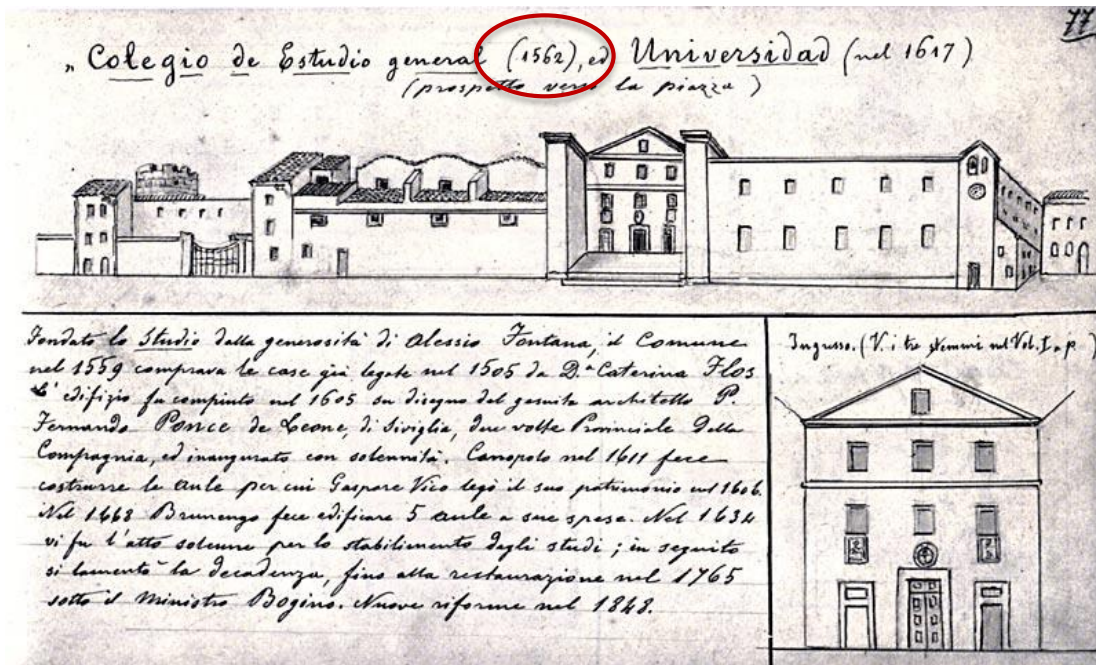 77
„ Colegio de Estudio general (1562), ed Universidad (nel 1617)
(prospetto verso la piazza)
Fondato lo Studio dalla generosità di Alessio Fontana, il Comune
nel 1559 comprava le case già legate nel 1505 da D.ª Caterina Flos.
L' edifizio fu compiuto nel 1605 su disegno del gesuita architetto P.
Fernando Ponce de Leone, di Siviglia, due volte Provinciale della
Compagnia, ed inaugurato con solennità. Canopolo nel 1611 fece
costrurre le aule per cui Gaspare Vico legò il suo patrimonio nel 1606.
Nel 1668 Brunengo fece edificare 5 aule a sue spese. Nel 1634
vi fu l'atto solenne per lo stabilimento degli studi; in seguito
si lamentò la decadenza, fino alla restaurazione nel 1765
sotto il Ministro Bogino. Nuove riforme nel 1848.
Ingresso. (V. i tre stemmi nel Vol. I. a p. )